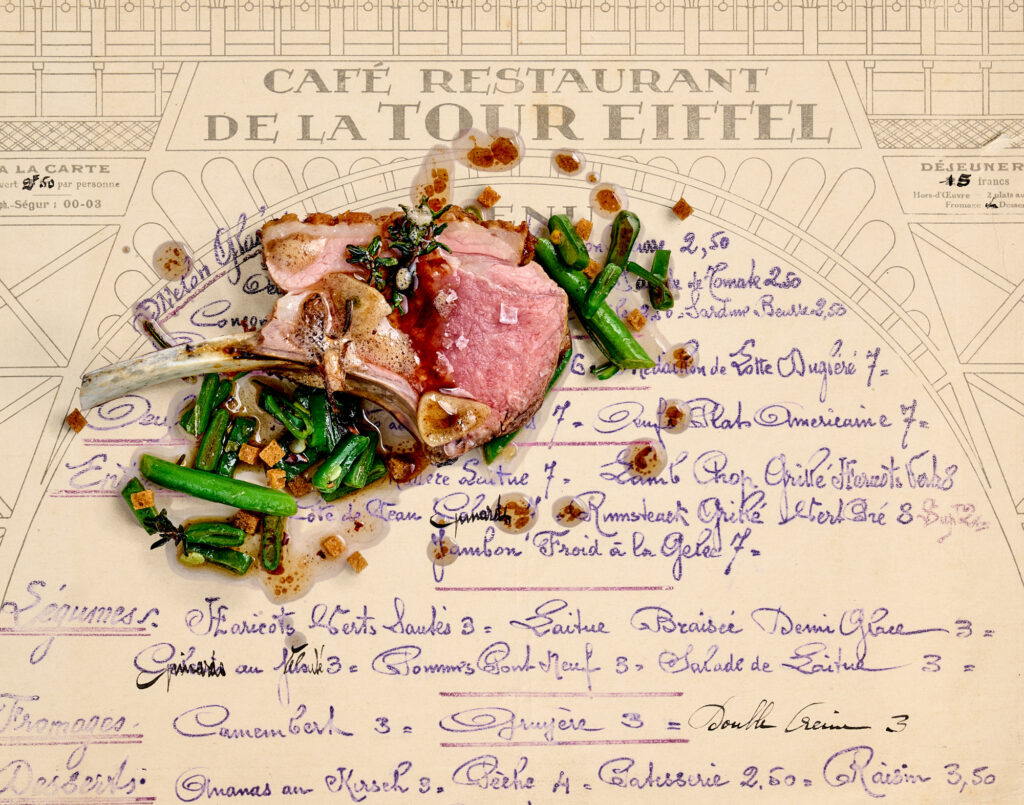 CAFÉ RESTAURANT
DE LA TOUR EIFFEL
A LA CARTE
2f50 par personne
Ségur : 00-03
DÉJEUNER
15 francs
Hors-d'Œuvre 2 plats au
Fromage Desse
MENU
Melon Glacé
2,50
de Tomate 2.50
2,50 = Sardine Beurre 2,50
de Lotte Dugléré 7 =
7 = Oeufs Plats Americaine 7 =
Laitue 7 = Lamb Chop Grillé Haricots Verts
Côte de Veau Rumsteack Grillé Vert Pré 8
Jambon Froid à la Gelée 7 =
Légumes: Haricots Verts Sautés 3 = Laitue Braisée Demi Glace 3 =
au 3 = Pommes Pont Neuf 3 = Salade de Laitue 3 =
Fromages. Camembert 3 = Gruyère 3 = Double Creme 3
Desserts: Ananas au Kirsch 3 = Pêche 4 = Patisserie 2,50 = Raisin 3,50